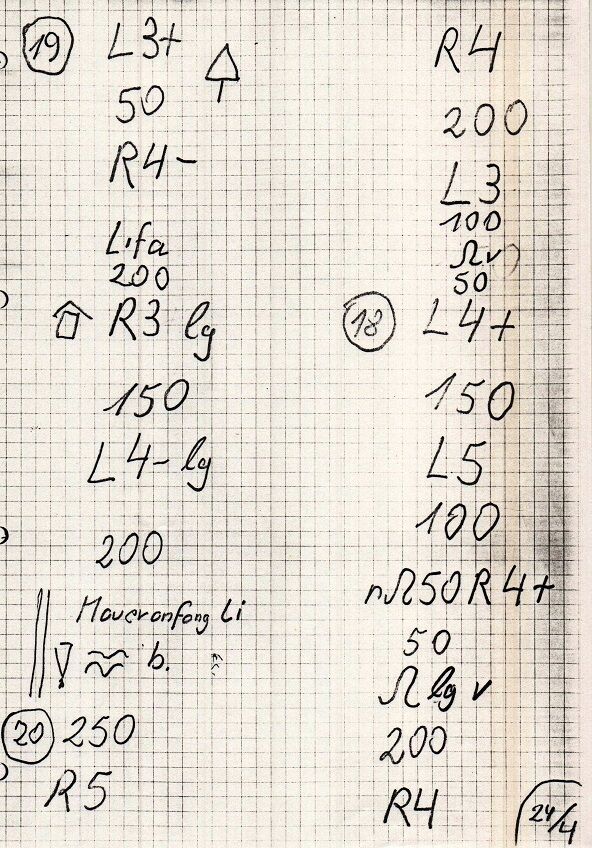 19 L3+
50
R4-
Lifa
200
R3 lg
150
L4- lg
200
Maueranfang Li
b.
20 250
R5
R4
200
L3
100
Ωv
50
18 L4+
150
L5
100
nΩ50R4+
50
Ω lg v
200
R4
24/4